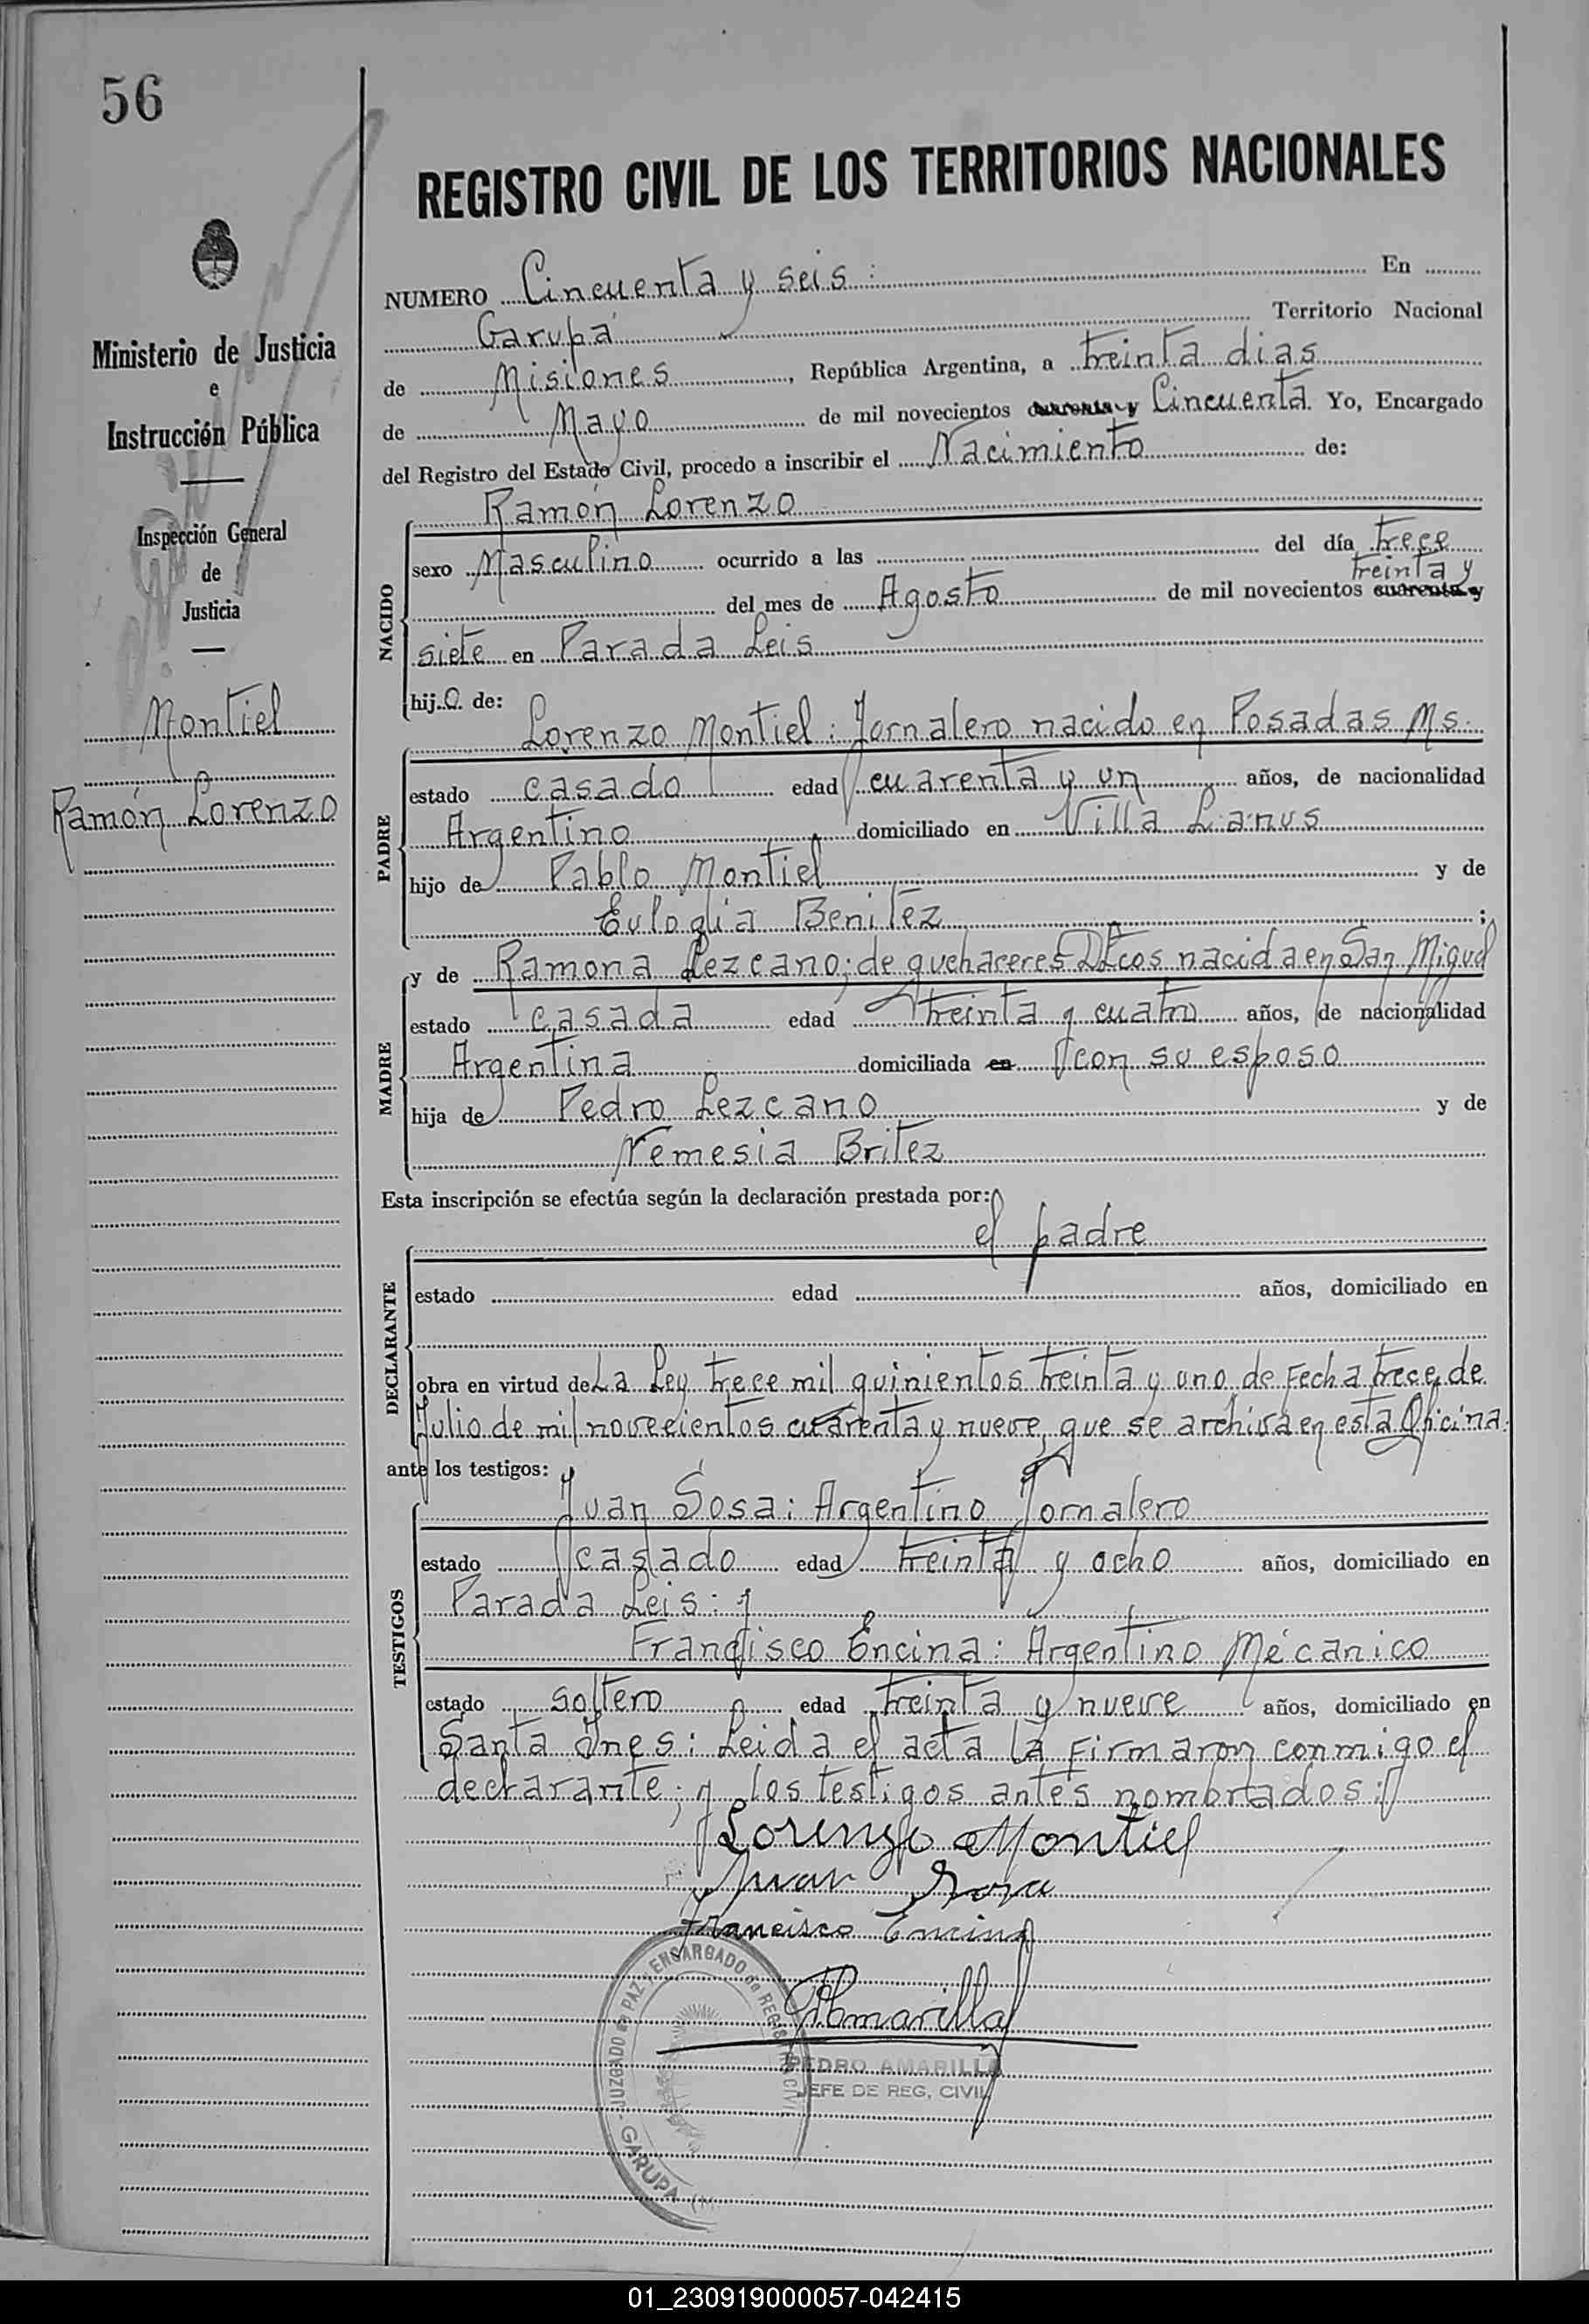 56
REGISTRO CIVIL DE LOS TERRITORIOS NACIONALES
Ministerio de Justicia
e
Instrucción Pública
Inspección General
de
Justicia
Montiel
Ramón Lorenzo
NUMERO Cincuenta y seis: En
Garupá Territorio Nacional
de Misiones, República Argentina, a treinta dias
de Mayo de mil novecientos cuarenta y Cincuenta. Yo, Encargado
del Registro del Estado Civil, procedo a inscribir el Nacimiento de:
NACIDO
Ramón Lorenzo
sexo Masculino ocurrido a las del día trece
treinta y
del mes de Agosto de mil novecientos cuarenta y
siete en Parada Leis
hijo de:
PADRE
Lorenzo Montiel: Jornalero nacido en Posadas Ms.
estado casado edad cuarenta y un años, de nacionalidad
Argentino domiciliado en Villa Lanus
hijo de Pablo Montiel y de
Eulogia Benitez;
MADRE
y de Ramona Lezcano; de quehaceres Dtcos nacida en San Miguel
estado casada edad treinta y cuatro años, de nacionalidad
Argentina domiciliada en con su esposo
hija de Pedro Lezcano y de
Nemesia Britez
Esta inscripción se efectúa según la declaración prestada por:
DECLARANTE
el padre
estado edad años, domiciliado en
obra en virtud de La Ley trece mil quinientos treinta y uno de Fecha trece de
Julio de mil novecientos cuarenta y nueve, que se archiva en esta Oficina.
ante los testigos:
TESTIGOS
Juan Sosa: Argentino Jornalero
estado casado edad treinta y ocho años, domiciliado en
Parada Leis: y
Francisco Encina: Argentino Mécanico
estado soltero edad treinta y nueve años, domiciliado en
Santa Ines: Leida el acta la Firmaron conmigo el
declarante; y los testigos antes nombrados:
Lorenzo Montiel
Juan Sosa
Francisco Encina
PAmarilla
JUZGADO de PAZ y ENCARGADO de REGISTRO CIVIL
GARUPA (M
PEDRO AMARILLA
JEFE DE REG. CIVIL
01_230919000057-042415